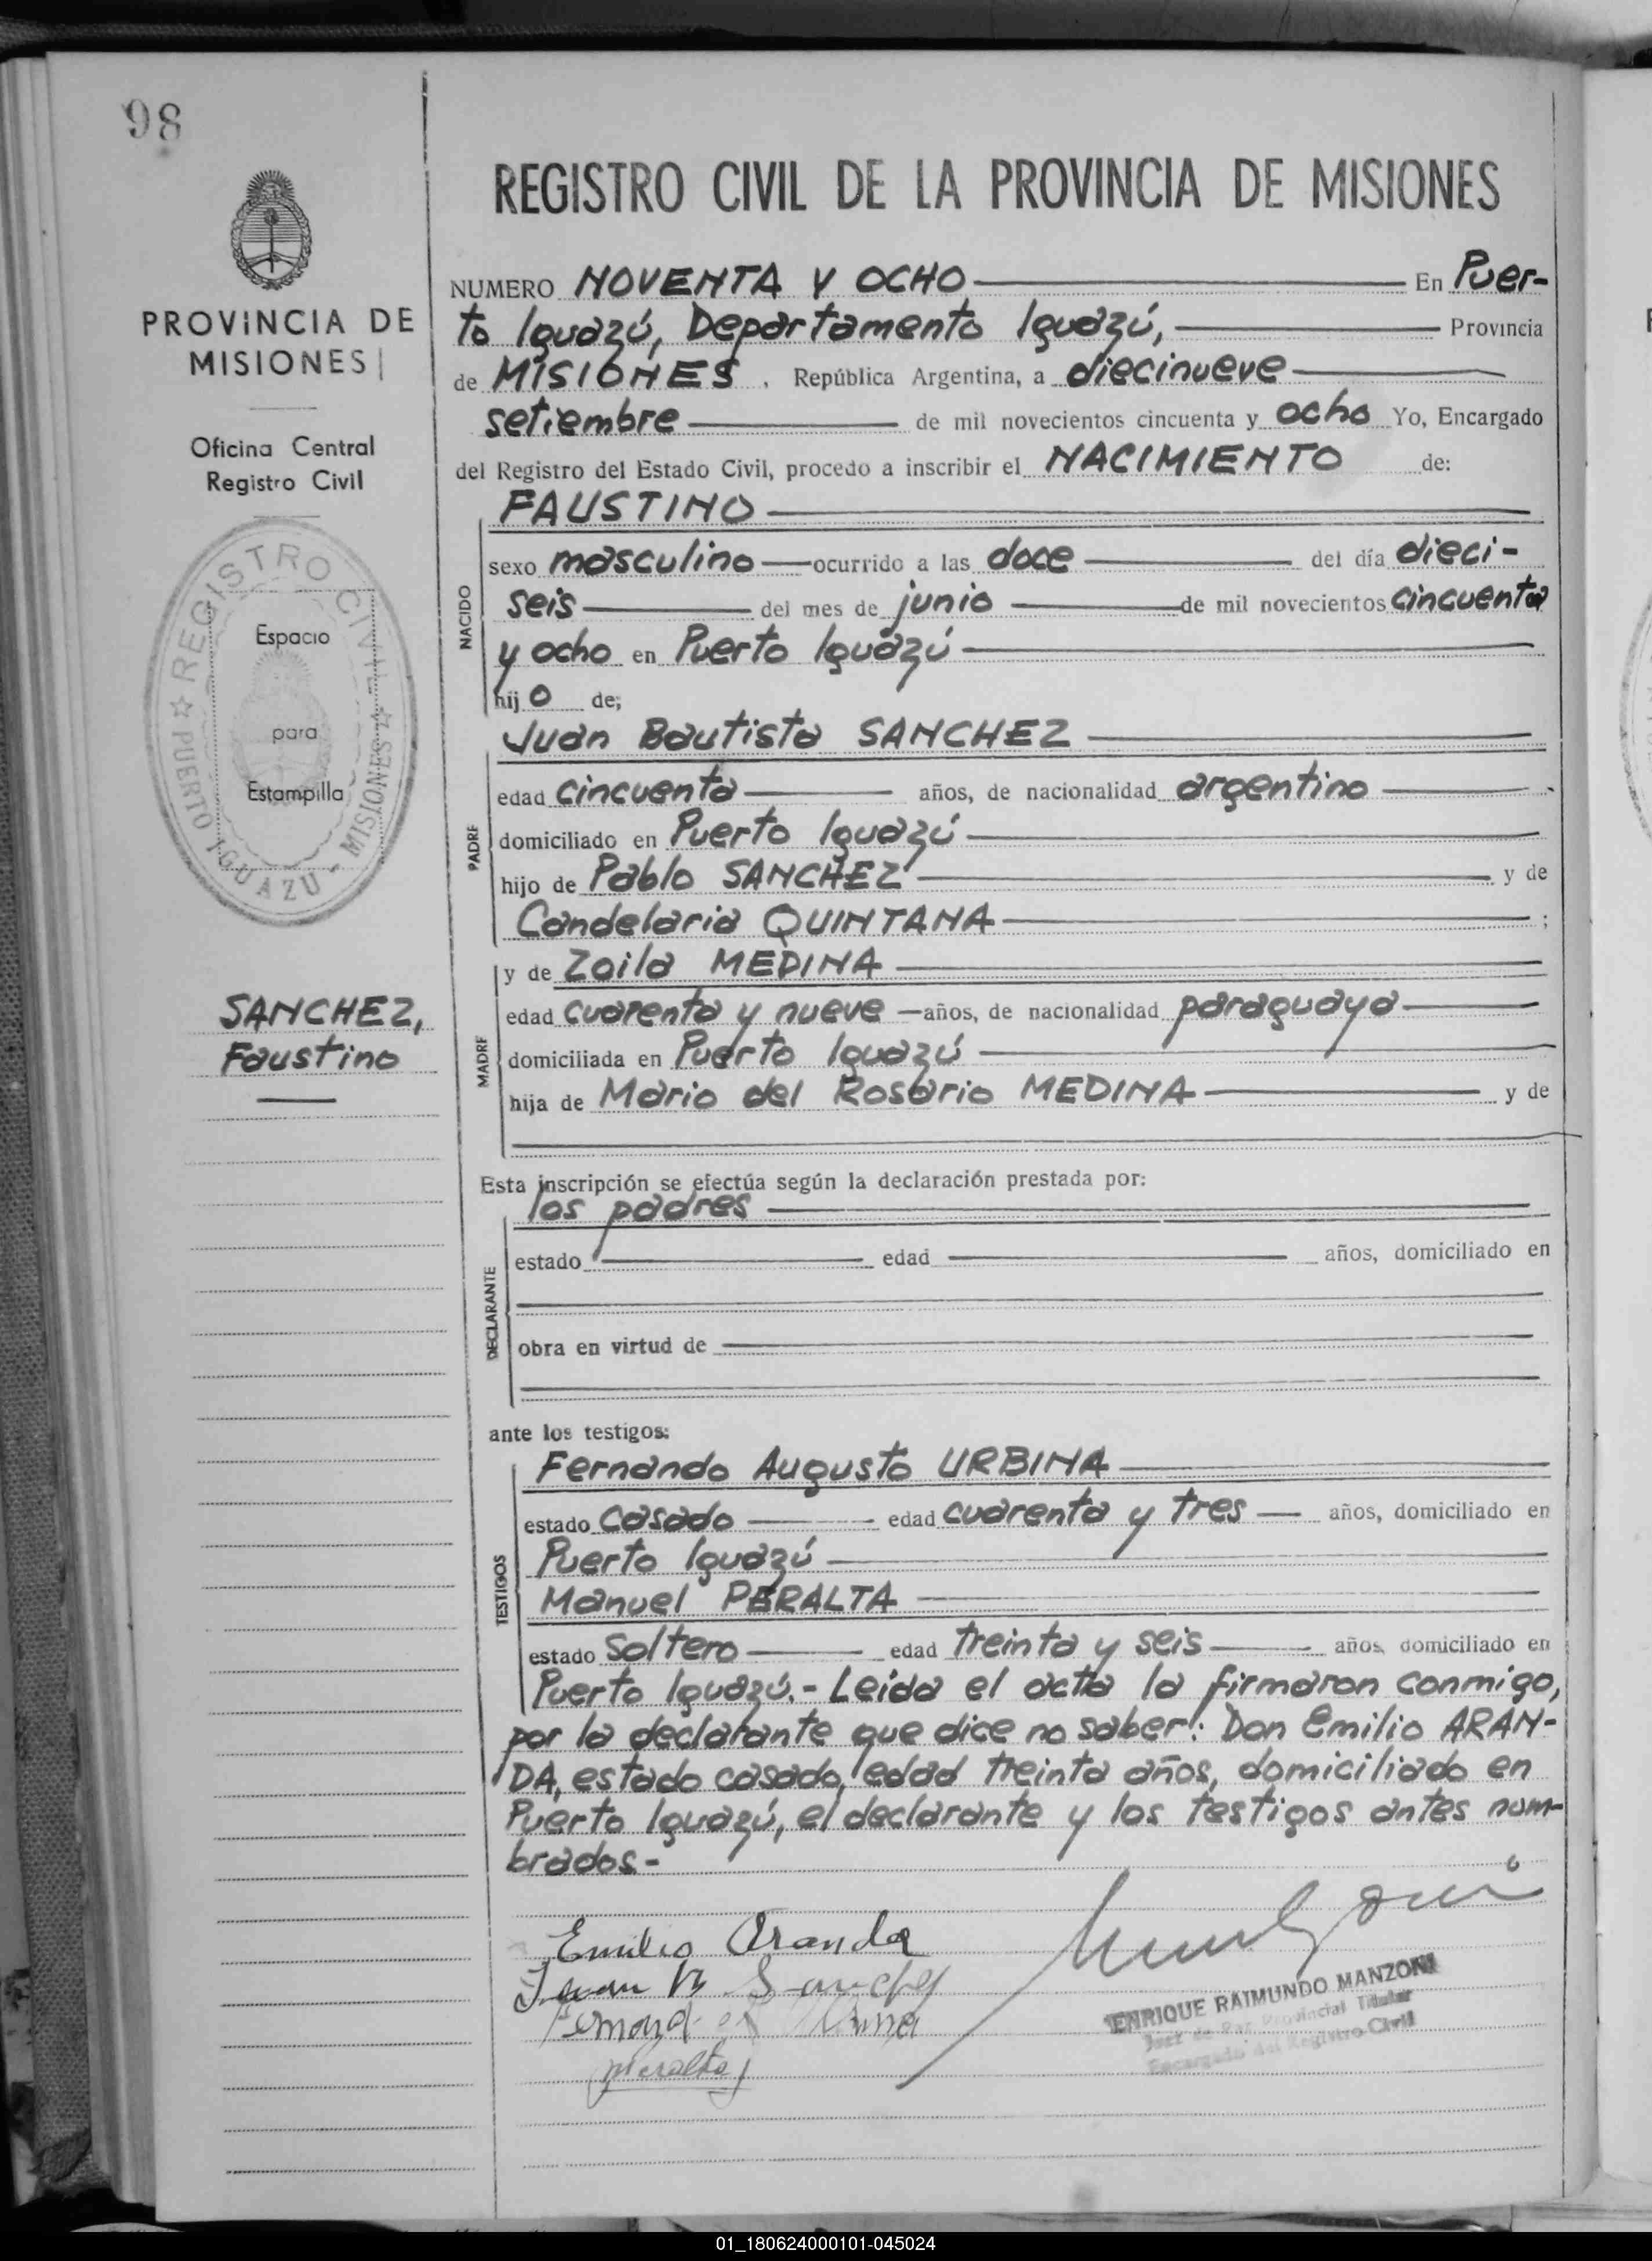 98
PROVINCIA DE
MISIONES
Oficina Central
Registro Civil
REGISTRO CIVIL
PUERTO IGUAZU - MISIONES
Espacio
para
Estampilla
SANCHEZ,
Faustino
REGISTRO CIVIL DE LA PROVINCIA DE MISIONES
NUMERO NOVENTA Y OCHO En Puer-
to Iguazú, Departamento Iguazú, Provincia
de MISIONES, República Argentina, a diecinueve
setiembre de mil novecientos cincuenta y ocho Yo, Encargado
del Registro del Estado Civil, procedo a inscribir el NACIMIENTO de:
NACIDO
FAUSTINO
sexo masculino ocurrido a las doce del día dieci-
seis del mes de junio de mil novecientos cincuenta
y ocho en Puerto Iguazú
hijo de;
PADRE
Juan Bautista SANCHEZ
edad cincuenta años, de nacionalidad argentino
domiciliado en Puerto Iguazú
hijo de Pablo SANCHEZ y de
Candelaria QUINTANA ;
MADRE
y de Zoila MEDINA
edad cuarenta y nueve años, de nacionalidad paraguaya
domiciliada en Puerto Iguazú
hija de Mario del Rosario MEDINA y de
Esta inscripción se efectúa según la declaración prestada por:
DECLARANTE
los padres
estado edad años, domiciliado en
obra en virtud de
ante los testigos:
TESTIGOS
Fernando Augusto URBINA
estado casado edad cuarenta y tres años, domiciliado en
Puerto Iguazú
Manuel PERALTA
estado soltero edad treinta y seis años, domiciliado en
Puerto Iguazú.- Leida el acta la firmaron conmigo,
por la declarante que dice no saber: Don Emilio ARAN-
DA, estado casado, edad treinta años, domiciliado en
Puerto Iguazú, el declarante y los testigos antes nom-
brados.-
Emilio Aranda
Juan B Sanchez
MPeralta
ENRIQUE RAIMUNDO MANZONI
Juez de Paz Provincial Titular
Encargado del Registro Civil
01_180624000101-045024